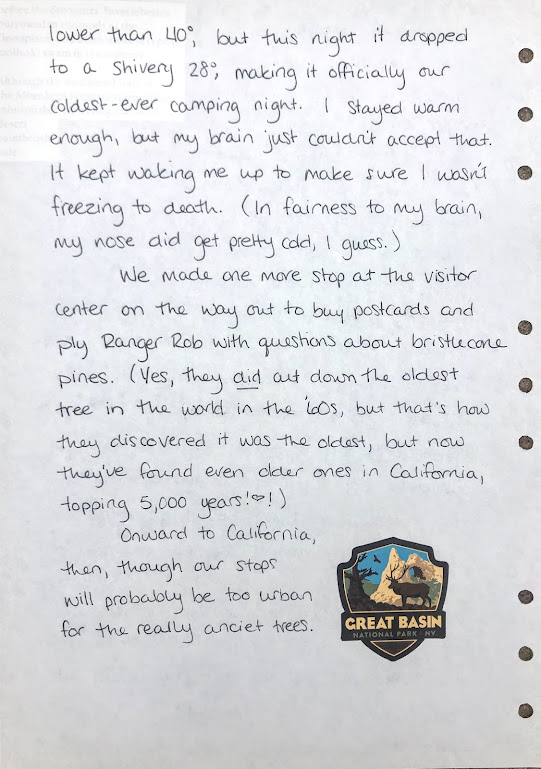 lower than 40°, but this night it dropped
to a shivery 28°, making it officially our
coldest-ever camping night. I stayed warm
enough, but my brain just couldn't accept that.
It kept waking me up to make sure I wasn't
freezing to death. (In fairness to my brain,
my nose did get pretty cold, I guess.)
We made one more stop at the visitor
center on the way out to buy postcards and
ply Ranger Rob with questions about bristlecone
pines. (Yes, they did cut down the oldest
tree in the world in the '60s, but that's how
they discovered it was the oldest, but now
they've found even older ones in California,
topping 5,000 years!♡!)
Onward to California,
then, though our stops
will probably be too urban
for the really anciet trees.
GREAT BASIN
NATIONAL PARK · NV